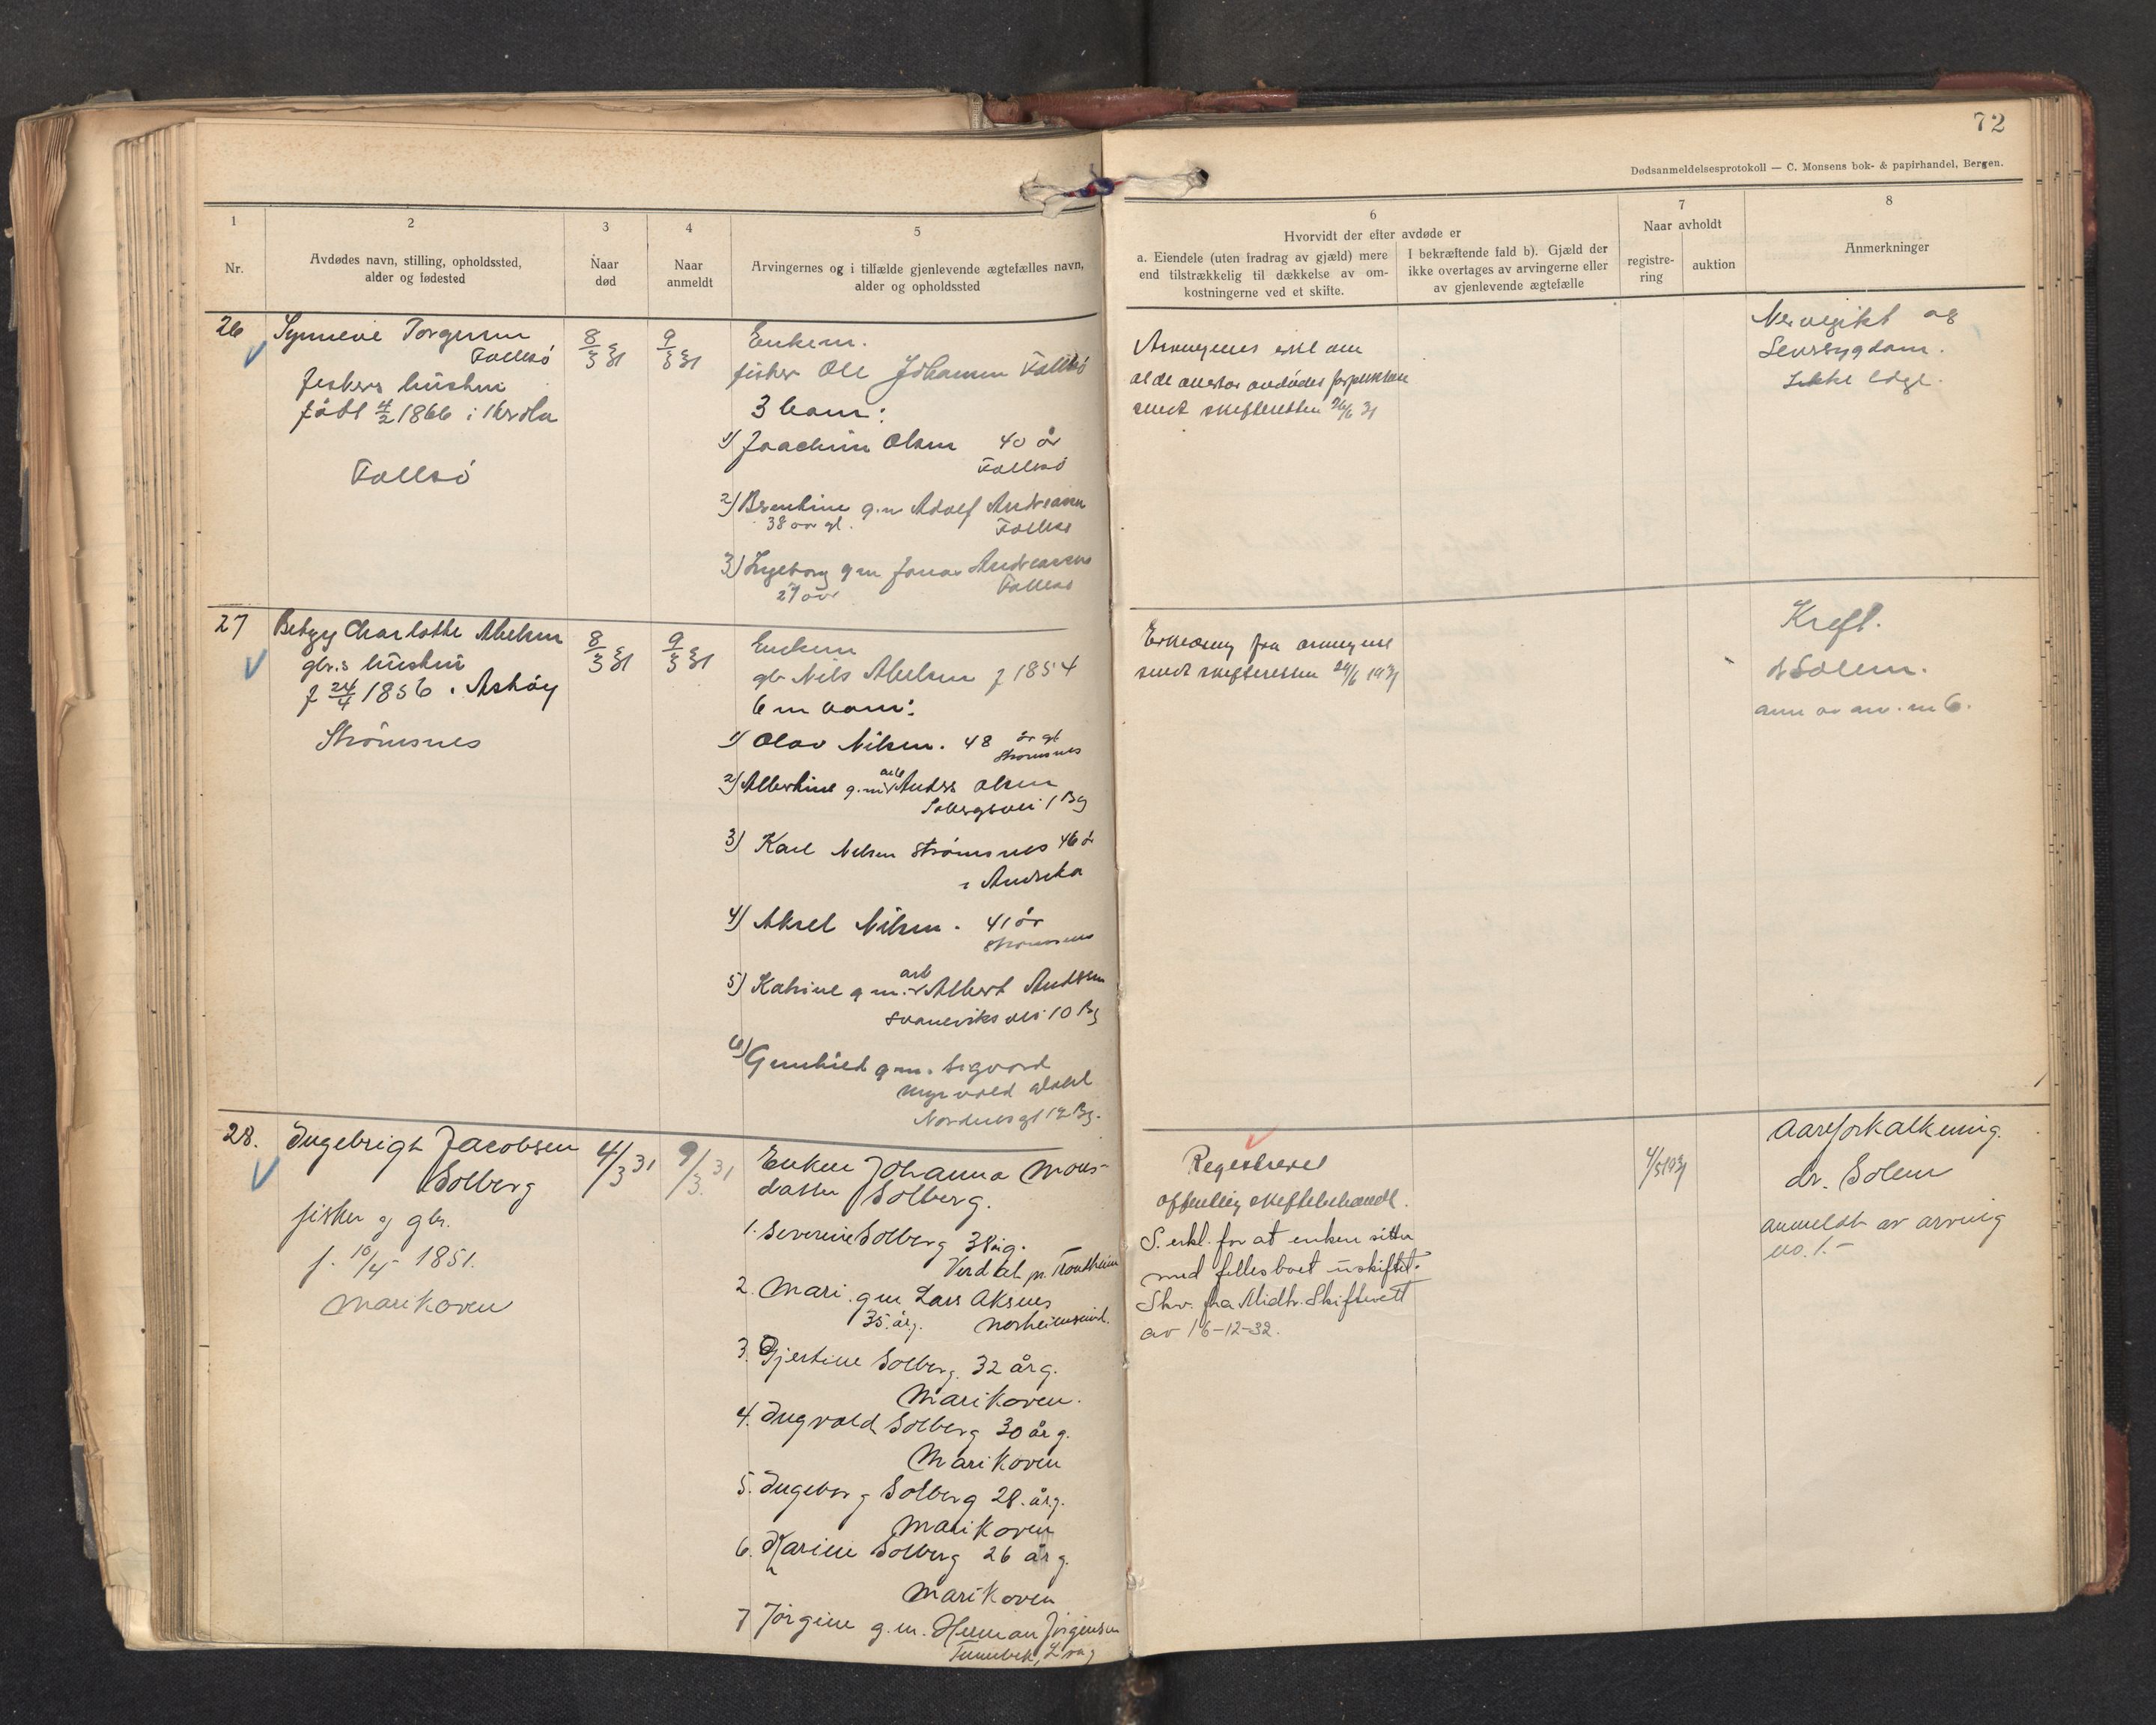 72
Dødsanmeldelsesprotokoll — C. Monsens bok- & papirhandel, Bergen.
1
Nr.
2
Avdødes navn, stilling, opholdssted,
alder og fødested
3
Naar
død
4
Naar
anmeldt
5
Arvingernes og i tilfælde gjenlevende ægtefælles navn,
alder og opholdssted
6
Hvorvidt der efter avdøde er
a. Eiendele (uten fradrag av gjæld) mere
end tilstrækkelig til dækkelse av om-
kostningerne ved et skifte.
I bekræftende fald b). Gjæld der
ikke overtages av arvingerne eller
av gjenlevende ægtefælle
7
Naar avholdt
registre-
ring
auktion
8
Anmerkninger
26
Synneve Torgersen
Follesö
fiskers hustru
født 4/2 1866 i
Follesö
8/3 31
9/3 31
Enkem.
fisker Ole Johannes Follesö
3 barn:
1) Joachim Olsen 40 år
Follesö
2) Berntine g.m Adolf Andreasen
38 aar gl. Follesö
3) Ingeborg g m Jonas Andreassen
27 år Follesö
Arvingenes erkl om
at de overtar avdødes forpliktelser
sendt skifteretten 26/6 31
Nervegikt og
Ikke læge.
27
Betzy Charlotte Abelsen
gbr.s hustru
f 24/4 1856 i Askøy
Strömsnes
8/3 31
9/3 31
Enkem
gbr Nils Abelsen f 1854
6 m barn:
1) Olav Nilsen. 48 år gl
Strömsnes
2) Albertine g.m arb Anders Olsen
1 Bg
3) Karl Nilsen Strömsnes 46 år
i Amerika
4) Aksel Nilsen. 41 år
Strömsnes
5) Katrine g m. arb Albert Andersen
Svaneviksvei 10 Bg
6) Gunhild g.m. Sigvard
Myrvold
Nordnesgt 12 Bg.
Erklæring fra arvingene
sendt skifteretten 24/6 1931
Kreft.
dr Solem.
anm av arv. nr 6.
28.
Ingebrigt Jacobsen
Solberg
fisker og gbr.
f. 10/4 1851.
Marikoven
4/3 31
9/3. 31
Enken Johanna Mons-
datter Solberg.
1. Severine Solberg 38 åg.
Verdal pr. Trondheim
2. Mari g m Lars Aksnes
35 årg. Norheimsund.
3. Gjertine Solberg. 32 årg.
Marikoven.
4. Ingvald Solberg 30 årg.
Marikoven
5. Ingeborg Solberg 28. årg.
Marikoven
6. Karine Solberg 26 årg.
Marikoven
7 Jørgine g.m. Herman Jørgensen
Registreret
offentlig skiftebehandl.
S. erkl. for at enken sitter
med fellesboet uskiftet.
Skr. fra Midhr. Skifterett
av 16-12-32.
4/5 1931
Aareforkalkning.
dr. Solem
anmeldt av arving
no. 1.-